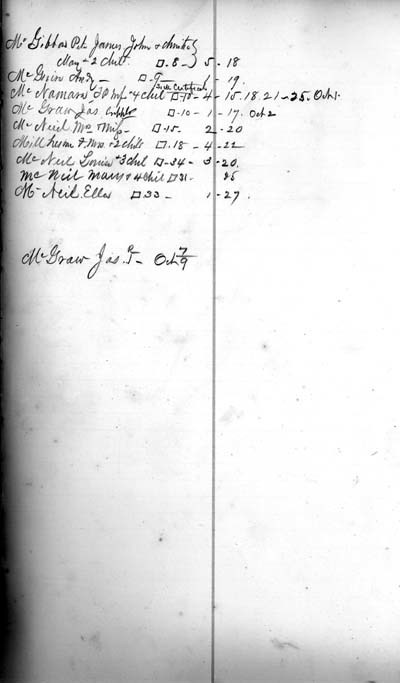 Mc Gibbon Pet. James John &
May - 2 chil □ - 8 - } 5 - 18
Mc Andy - □ - 9 - 1 - 19.
Sick Certificate
Mc Namara & 4 chil □ - 10 - 4 - 15. 18. 21 - 25. Oct 1.
Mc Graw Jas. □ - 10 - 1 - 17. Oct 2
Mc Neil Mrs □ - 15 - 2 - 20
Millheim & Mrs & 2 chil □ . 18 - 4 - 22
Mc Neil Louisa & 3 chil □ - 24 - 3 - 20.
Mc Neil Mary & 4 chil □ 31 - 25
Mc Neil. Ella □ 33 - 1 - 27.
Mc Graw Jas. - Oct 7/9